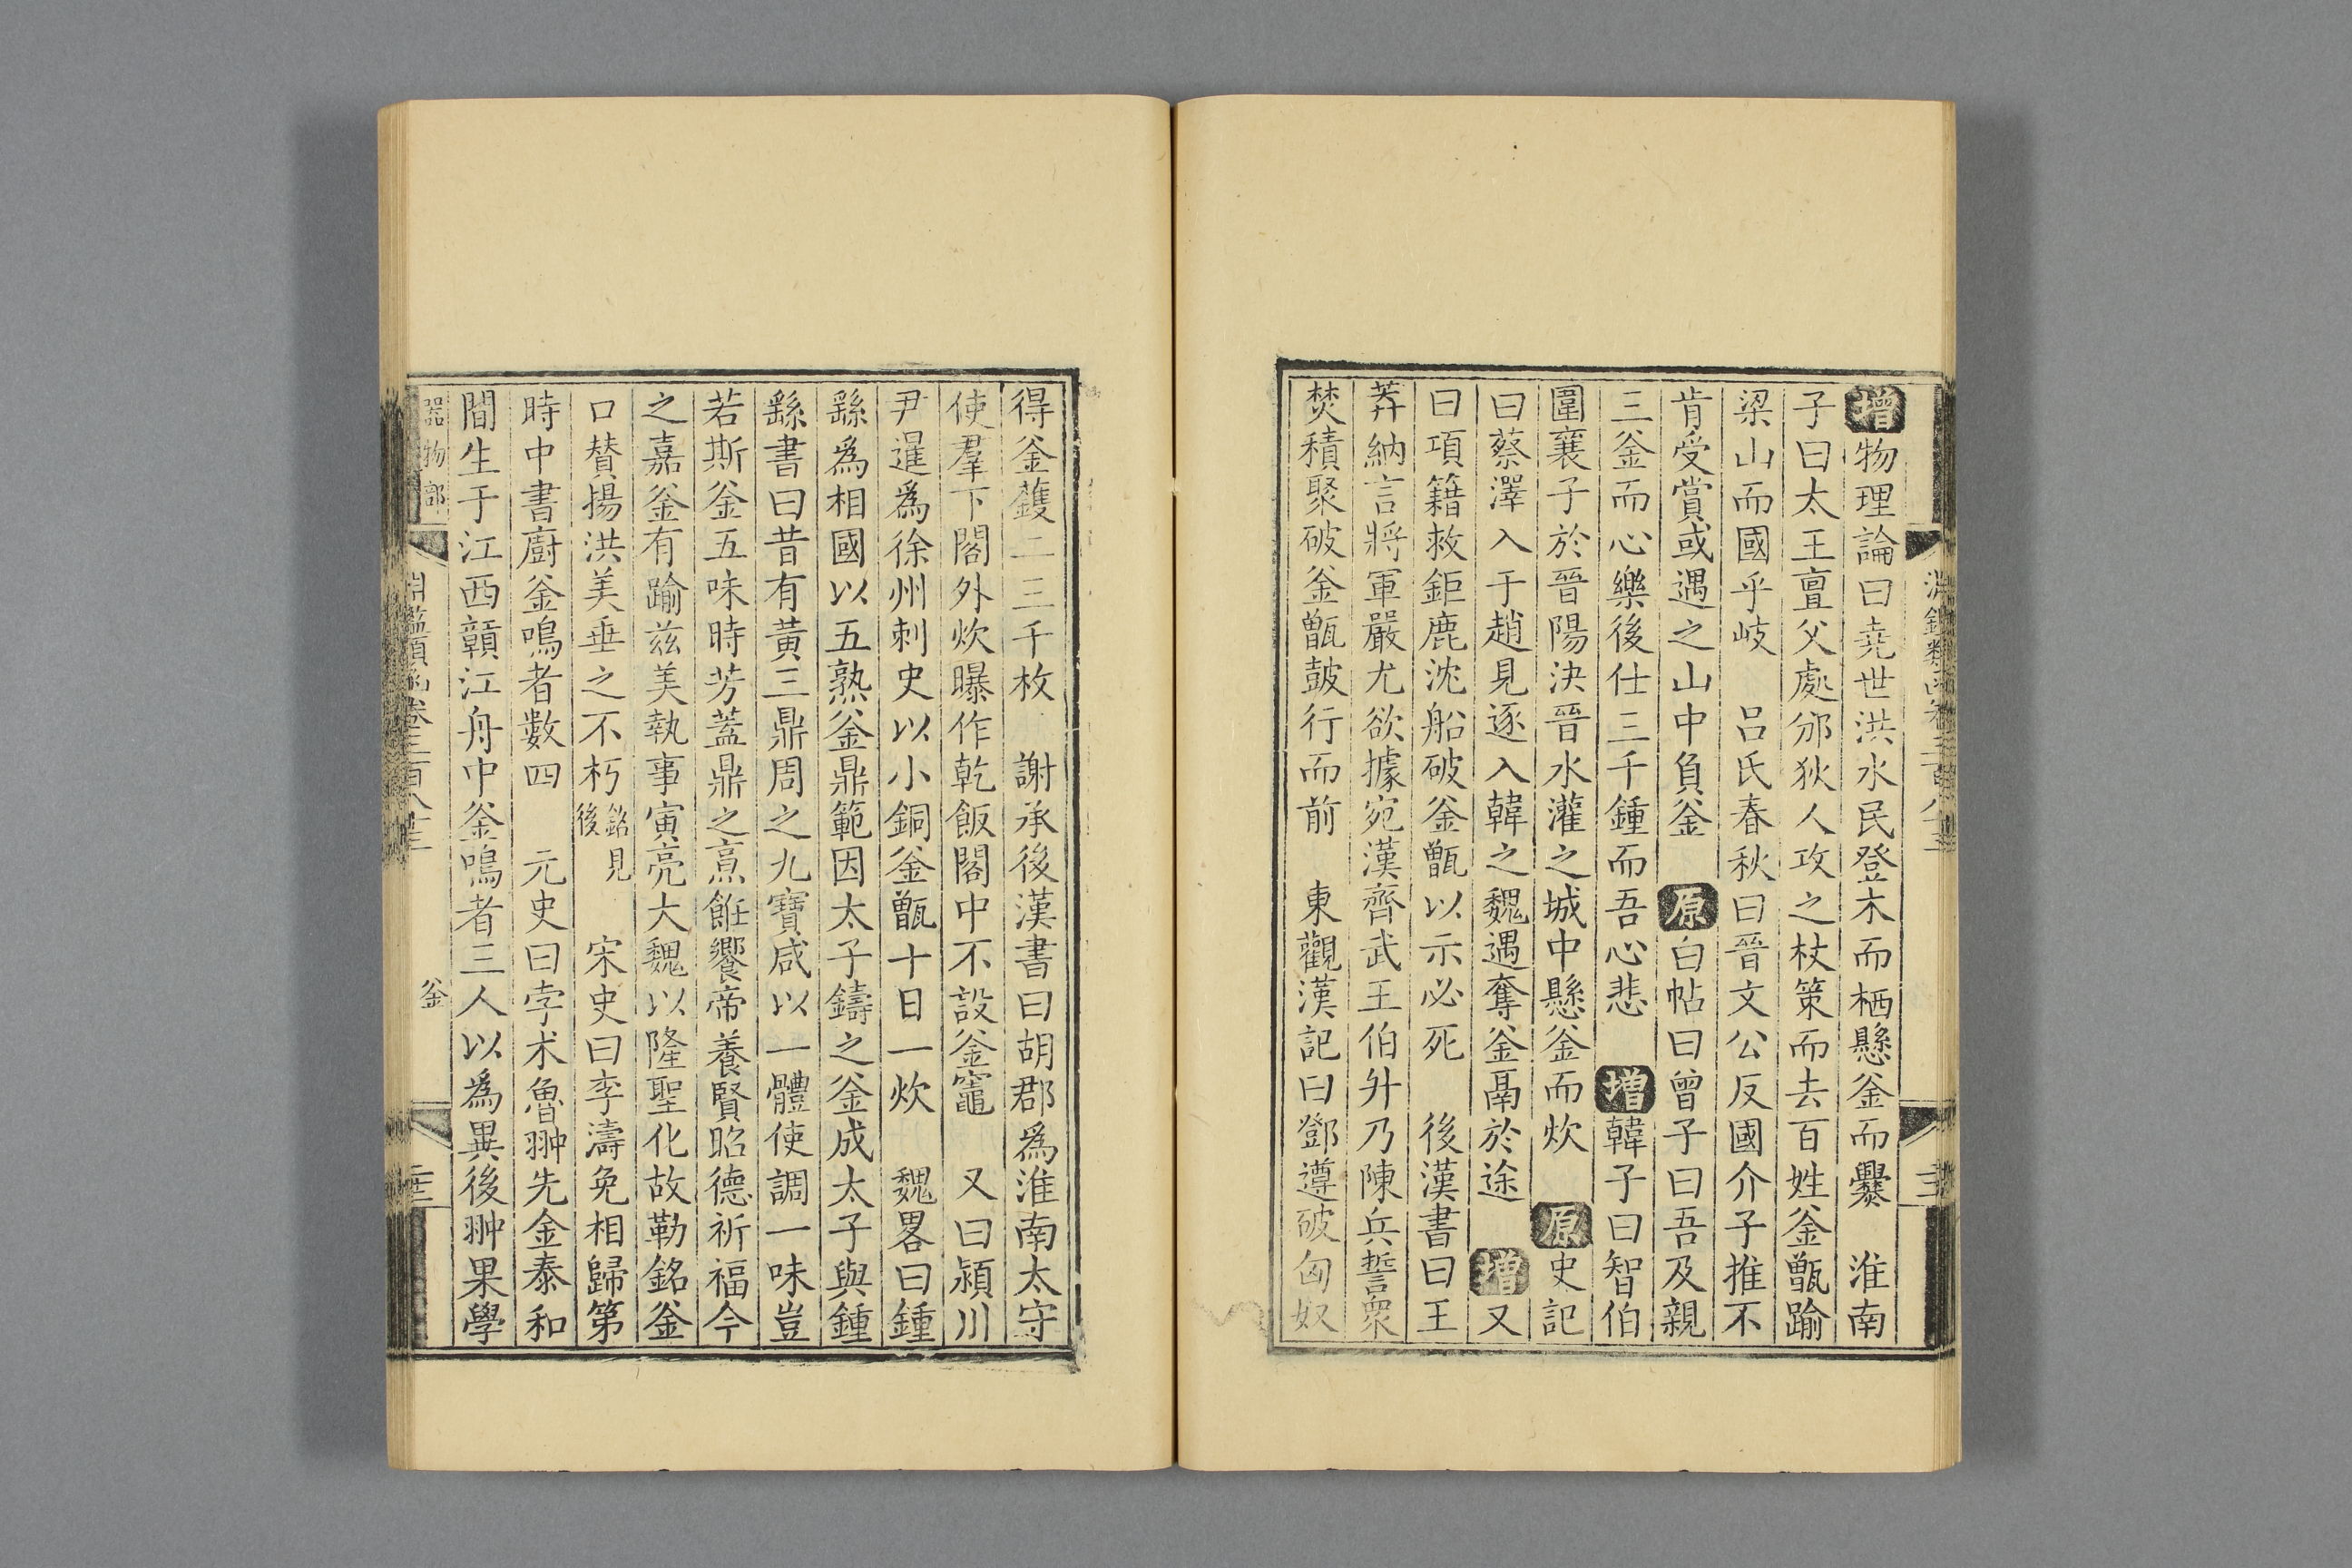 增物理論曰堯世洪水民登木而栖懸釜而爨　淮南
子曰太王亶父處邠狄人攻之杖策而去百姓釜甑踰
梁山而國乎岐　吕氏春秋曰晉文公反國介子推不
肯受賞或遇之山中負釜　原白帖曰曾子曰吾及親
三釜而心樂後仕三千鍾而吾心悲　增韓子曰智伯
圍襄子於晉陽決晉水灌之城中懸釜而炊　原史記
曰蔡澤入于趙見逐入韓之魏遇奪釜鬲於途　增又
曰項籍救鉅鹿沈船破釜甑以示必死　後漢書曰王
莽納言將軍嚴尤欲據宛漢齊武王伯升乃陳兵誓衆
焚積聚破釜甑鼓行而前　東觀漢記曰鄧遵破匈奴
得釜鑊二三千枚　謝承後漢書曰胡郡爲淮南太守
使羣下閣外炊曝作乾飯閣中不設釜竈　又曰潁川
尹暹爲徐州刺史以小銅釜甑十日一炊　魏畧曰鍾
繇爲相國以五熟釜鼎範因太子鑄之釜成太子與鍾
繇書曰昔有黃三鼎周之九寶咸以一體使調一味豈
若斯釜五味時芳蓋鼎之烹飪饗帝養賢昭德祈福今
之嘉釜有踰兹美執事寅亮大魏以隆聖化故勒銘釜
口贊揚洪美垂之不朽銘見後　宋史曰李濤免相歸第
時中書廚釜鳴者數四　元史曰孛术魯翀先金泰和
間生于江西贛江舟中釜鳴者三人以爲異後翀果學
器物部　淵鑑類函卷三百八十三　釜　二十三